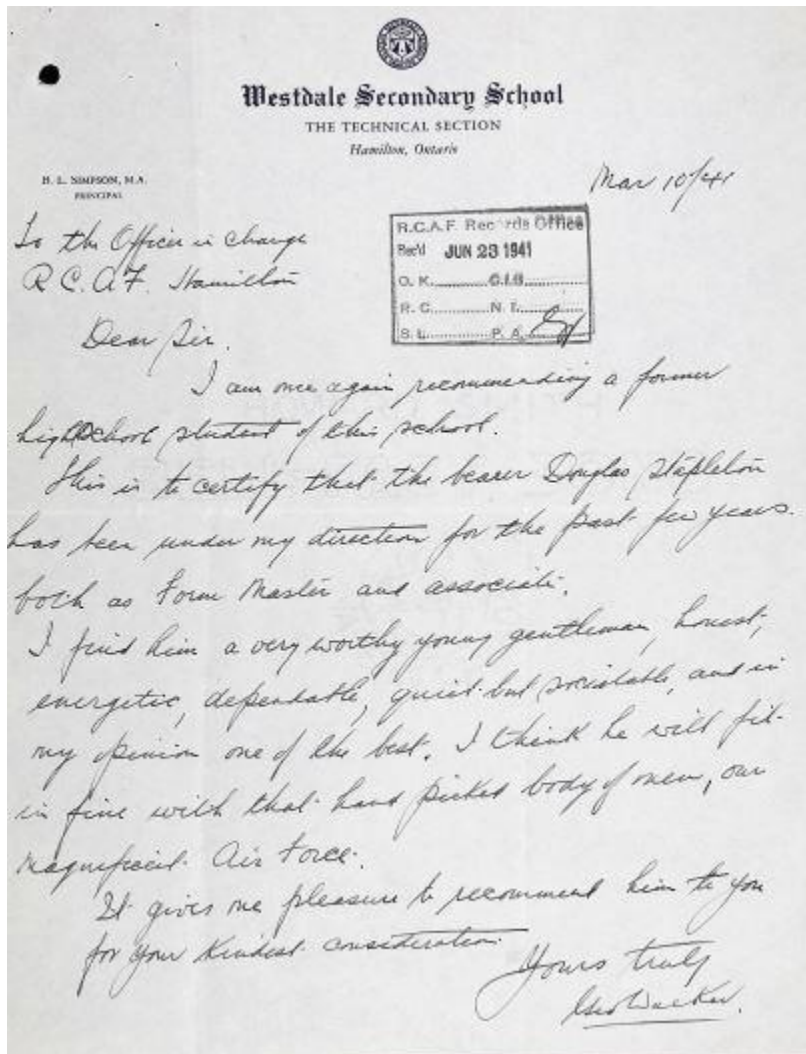 Westdale Secondary School
THE TECHNICAL SECTION
Hamilton, Ontario
H. L. SIMPSON, M.A.
PRINCIPAL
Mar 10/41
R.C.A.F. Records Office
Rec'd JUN 23 1941
O. K.
R. C. N. E.
S. L. P. A.
To the Officer in Charge
R C.A.F. Hamilton
Dear Sir.
I am once again recommending a former
high school student of this school.
This is to certify that the bearer Douglas Stapleton
has been under my direction for the past few years.
both as Form Master and associate.
I find him a very worthy young gentleman, honest,
energetic, dependable, quiet but sociable, and in
my opinion one of the best. I think he will fit
in fine with that hand picked body of men, our
magnificent Air Force.
It gives me pleasure to recommend him to you
for your kindest consideration.
Yours truly
Geo Walker.